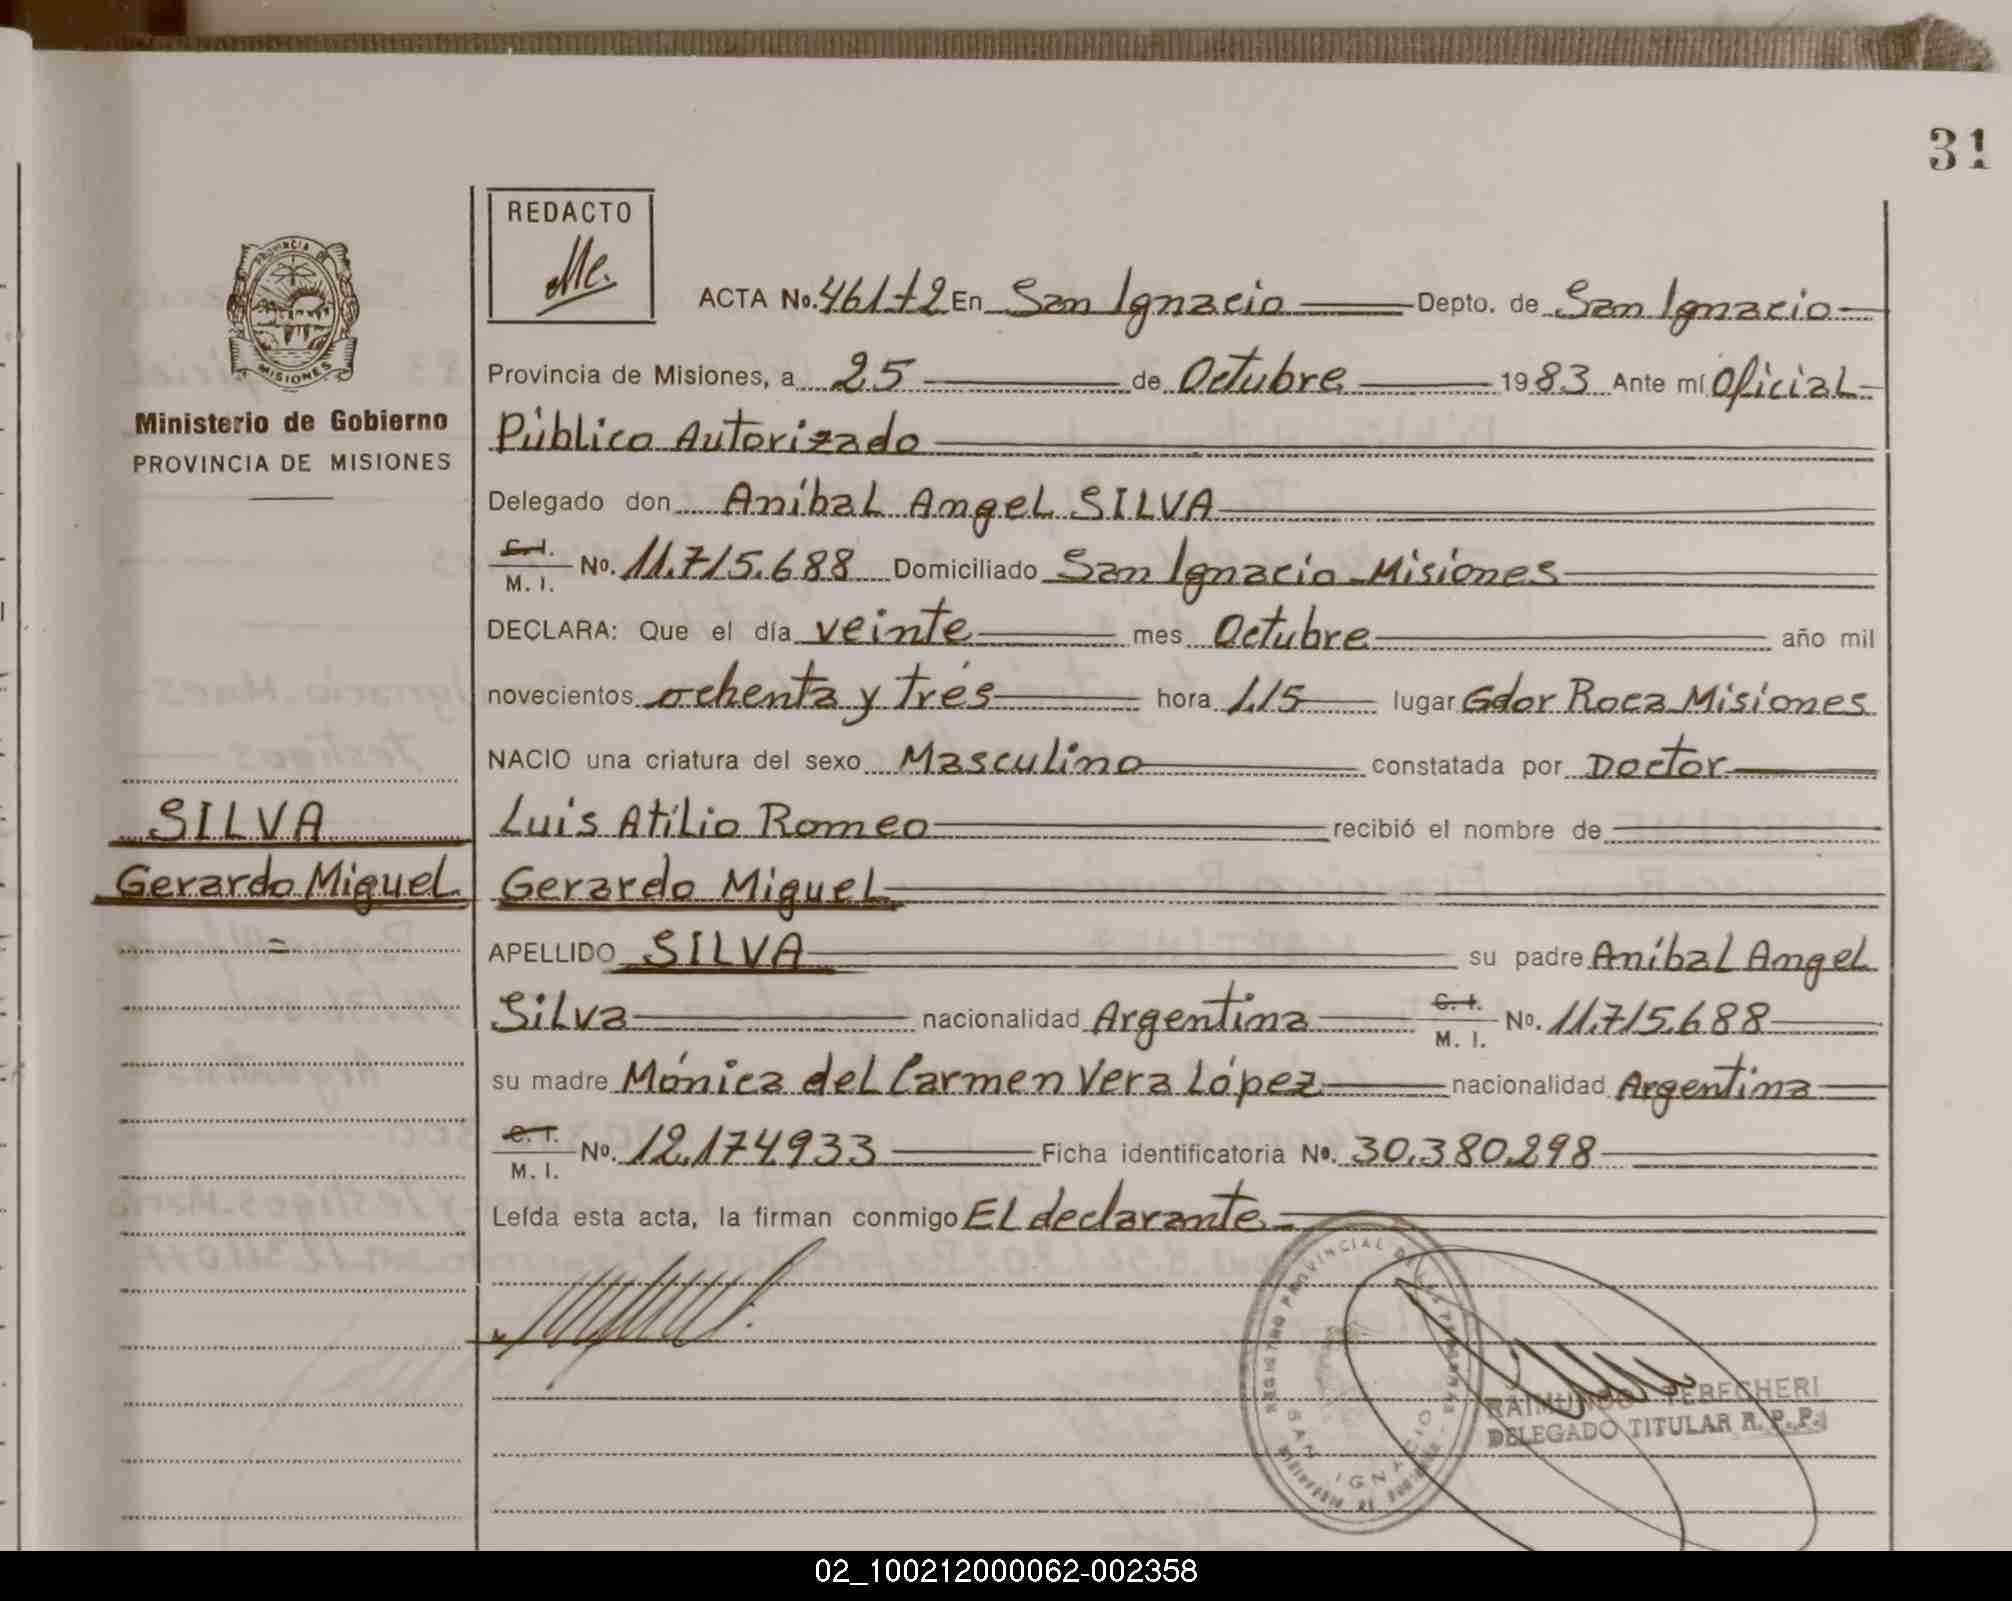 31
REDACTO
PROVINCIA DE
MISIONES
Ministerio de Gobierno
PROVINCIA DE MISIONES
ACTA No. 461 t2 En San Ignacio Depto. de San Ignacio
Provincia de Misiones, a 25 de Octubre 1983 Ante mí Oficial
Público Autorizado
Delegado don Aníbal Angel SILVA
C. I. M. I. No. 11.715.688 Domiciliado San Ignacio - Misiones
DECLARA: Que el día veinte mes Octubre año mil
novecientos ochenta y trés hora 1,15 lugar Gdor Roca Misiones
NACIO una criatura del sexo Masculino constatada por Doctor
Luis Atilio Romeo recibió el nombre de
Gerardo Miguel
APELLIDO SILVA su padre Aníbal Angel
Silva nacionalidad Argentina C. I. M. I. No. 11.715.688
su madre Mónica del Carmen Vera López nacionalidad Argentina
C. I. M. I. No. 12.174933 Ficha identificatoria No. 30.380.298
Leída esta acta, la firman conmigo El declarante.
SILVA
Gerardo Miguel
=
REGISTRO PROVINCIAL DE LAS PERSONAS
SAN IGNACIO
RAIMUNDO
DELEGADO TITULAR R. P. P.
02_100212000062-002358